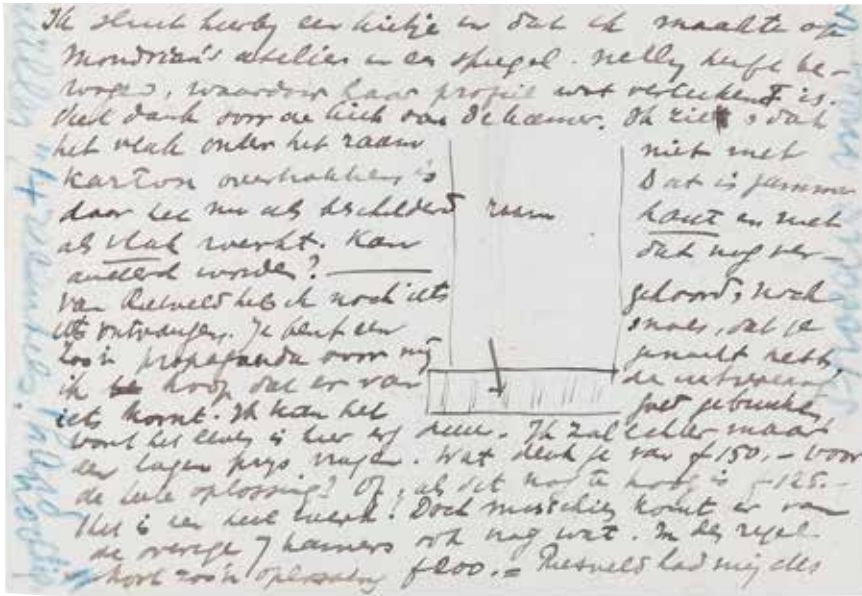 Ik sluit hierby een kiekje in dat ik maakte op
Mondriaan's atelier in een spiegel. Nelly heeft be-
wogen, waardoor haar profiel wat vertekend is.
Veel dank voor de kiek van de kamer. Ik zie 's dat
het vlak onder het raam niet met
karton overtrokken is Dat is jammer
daar het nu als beschilderd raam hout en niet
als vlak werkt. Kan dat nog ver-
anderd worden? —
Van Rietveld heb ik noch iets gehoord, noch
iets ontvangen. Je bent een snoes, dat je
zoo'n propaganda voor mij gemaakt hebt,
ik hoop dat er van de uitvoering
iets komt. Ik kan het goed gebruiken,
want het leven is hier erg duur. Ik zal echter maar
een lagen prys vragen. Wat denk je van f150,- voor
de heele oplossing? Of, als dit nog te hoog is f125.-
Het is een heel werk! Doch misschien komt er van
de overige 7 kamers ook nog wat. In den regel
kost zoo'n oplossing f200.= Rietveld had mij des